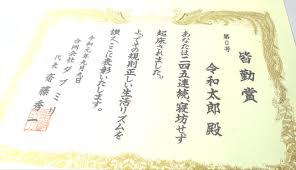 皆勤賞
第0号
令和太郎 殿
あなたは二四五連続、寝坊せず
起床されました。
その規則正しい生活リズムを
讃えここに表彰いたします。
令和元年五月九日
合同会社ダブミリー
代表 齋藤 秀一